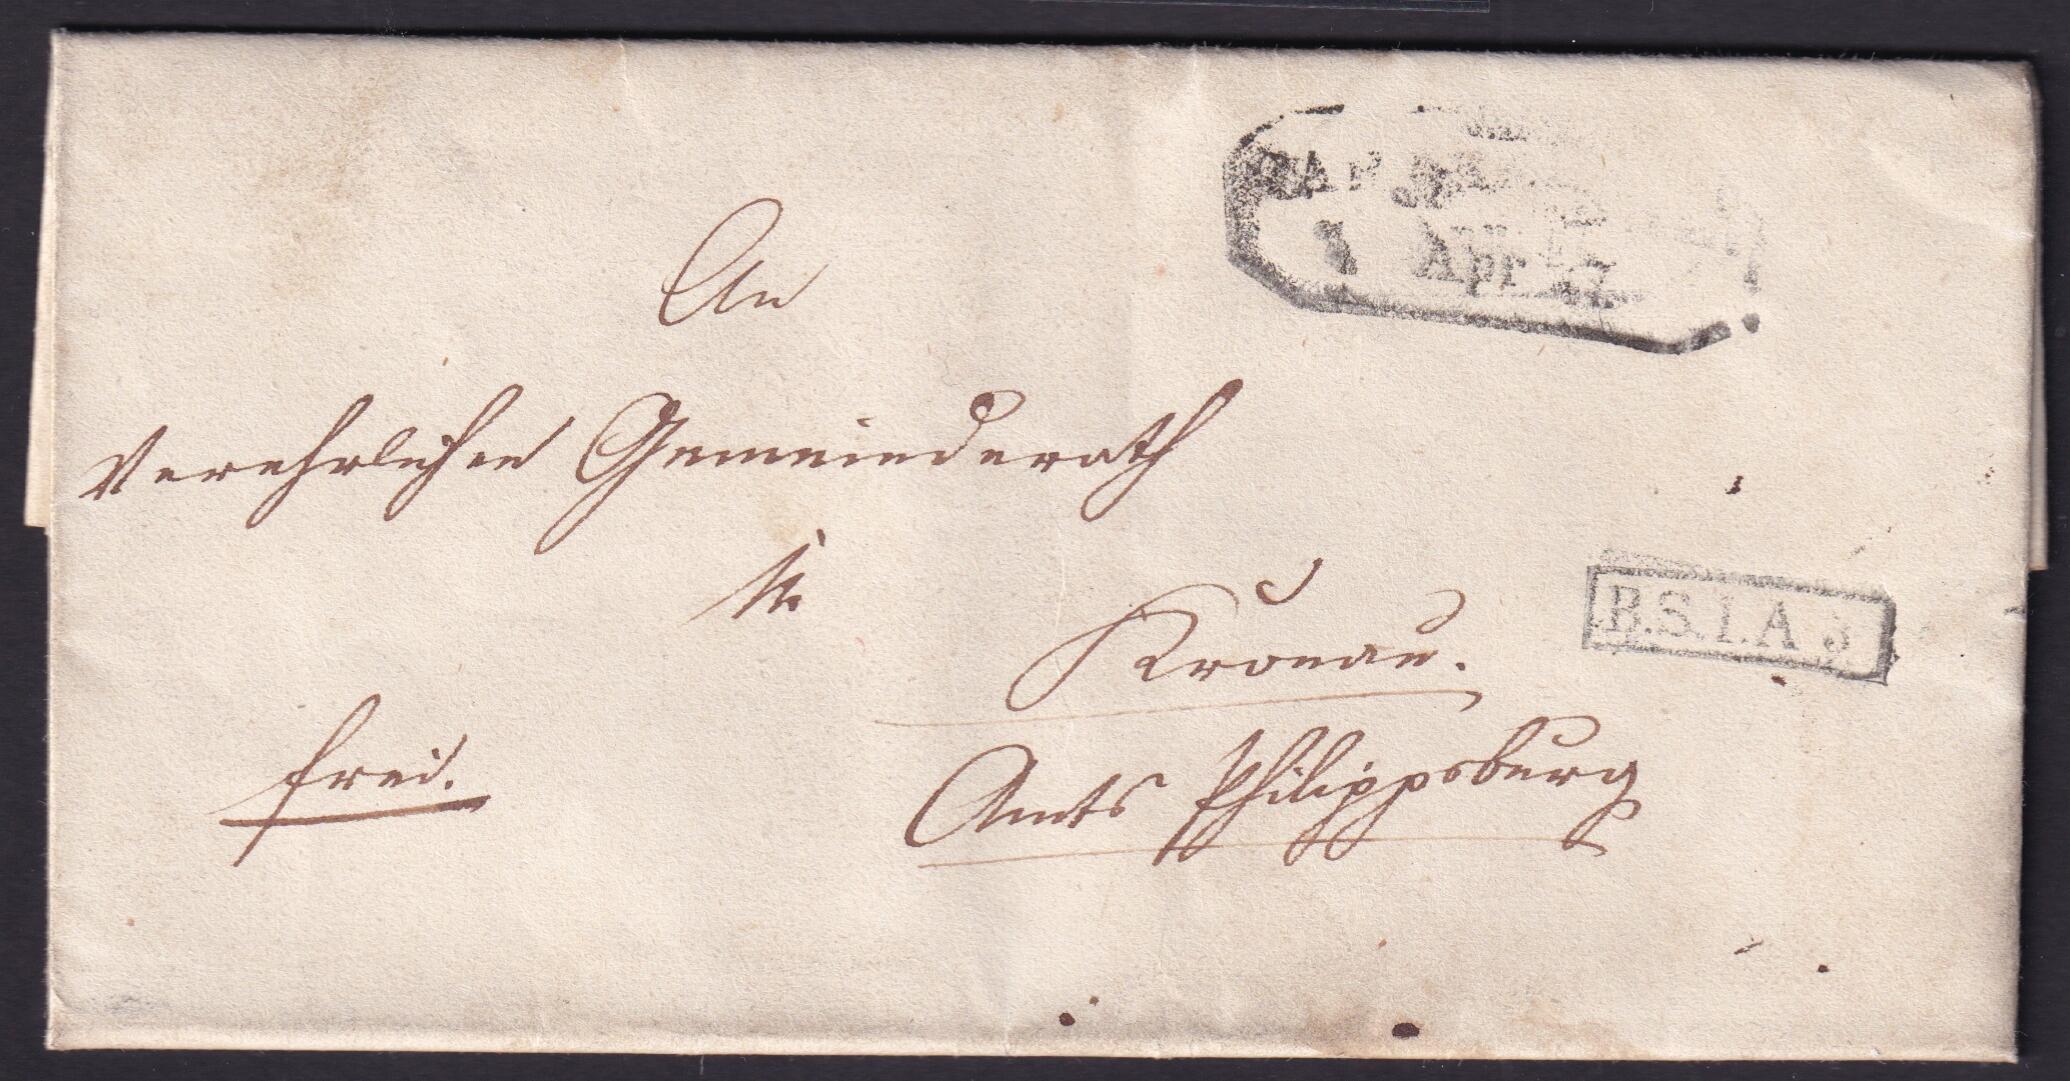 An
Verehrlichen Gemeinderath
in
Kronau.
frei.
Amts Philippsburg
Apr
B.S.I.A 3